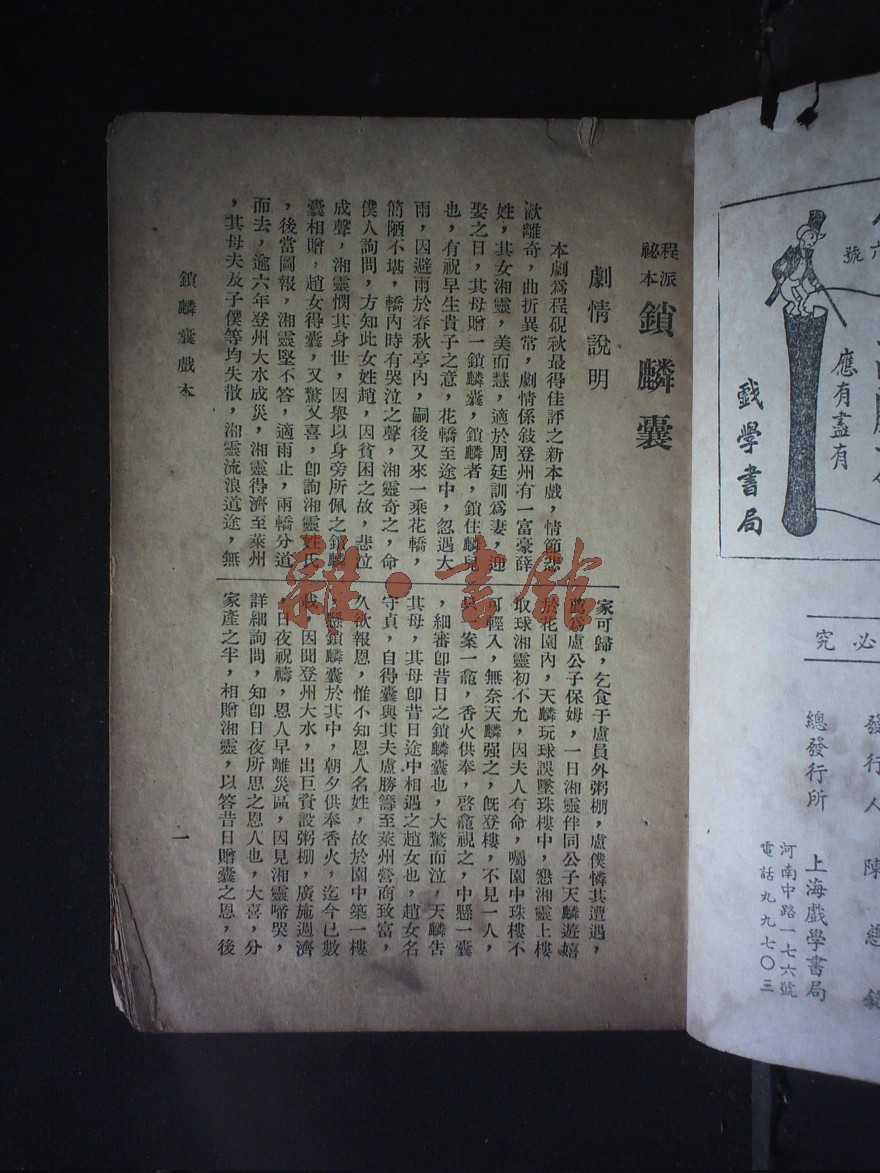 程派
祕本
鎖麟囊
劇情說明
本劇爲程硯秋最得佳評之新本戲，情節悲
歡離奇，曲折異常，劇情係敍登州有一富豪薛
姓，其女湘靈，美而慧，適於周廷訓爲妻，迎
娶之日，其母贈一鎖麟囊，鎖麟者，鎖住麟兒
也，有祝早生貴子之意，花轎至途中，忽遇大
雨，因避雨於春秋亭內，嗣後又來一乘花轎，
簡陋不堪，轎內時有哭泣之聲，湘靈奇之，命
僕人詢問，方知此女姓趙，因貧困之故，悲泣
成聲，湘靈憫其身世，因舉以身旁所佩之鎖麟
囊相贈，趙女得囊，又驚又喜，卽詢湘靈姓氏
，後當圖報，湘靈堅不答，適雨止，兩轎分道
而去，逾六年登州大水成災，湘靈得濟至萊州
，其母夫及子僕等均失散，湘靈流浪道途，無
家可歸，乞食于盧員外粥棚，盧僕憐其遭遇，
薦爲盧公子保姆，一日湘靈伴同公子天麟遊嬉
於花園內，天麟玩球誤墜珠樓中，懇湘靈上樓
取球湘靈初不允，因夫人有命，囑園中珠樓不
可輕入，無奈天麟强之，旣登樓，不見一人，
案一龕，香火供奉，啓龕視之，中懸一囊
，細審卽昔日之鎖麟囊也，大驚而泣，天麟告
其母，其母卽昔日途中相遇之趙女也，趙女名
守貞，自得囊與其夫盧勝籌至萊州營商致富，
久欲報恩，惟不知恩人名姓，故於園中築一樓
，懸鎖麟囊於其中，朝夕供奉香火，迄今已數
載，因聞登州大水，出巨資設粥棚，廣施週濟
，日夜祝禱，恩人早離災區，因見湘靈啼哭，
詳細詢問，知卽日夜所思之恩人也，大喜，分
家產之半，相贈湘靈，以答昔日贈囊之恩，後
鎖麟囊戲本
一
雜·書館
號
應有盡有
戲學書局
必究
發行人 陳
總發行所 上海戲學書局
河南中路一七六號
電話九九七〇三